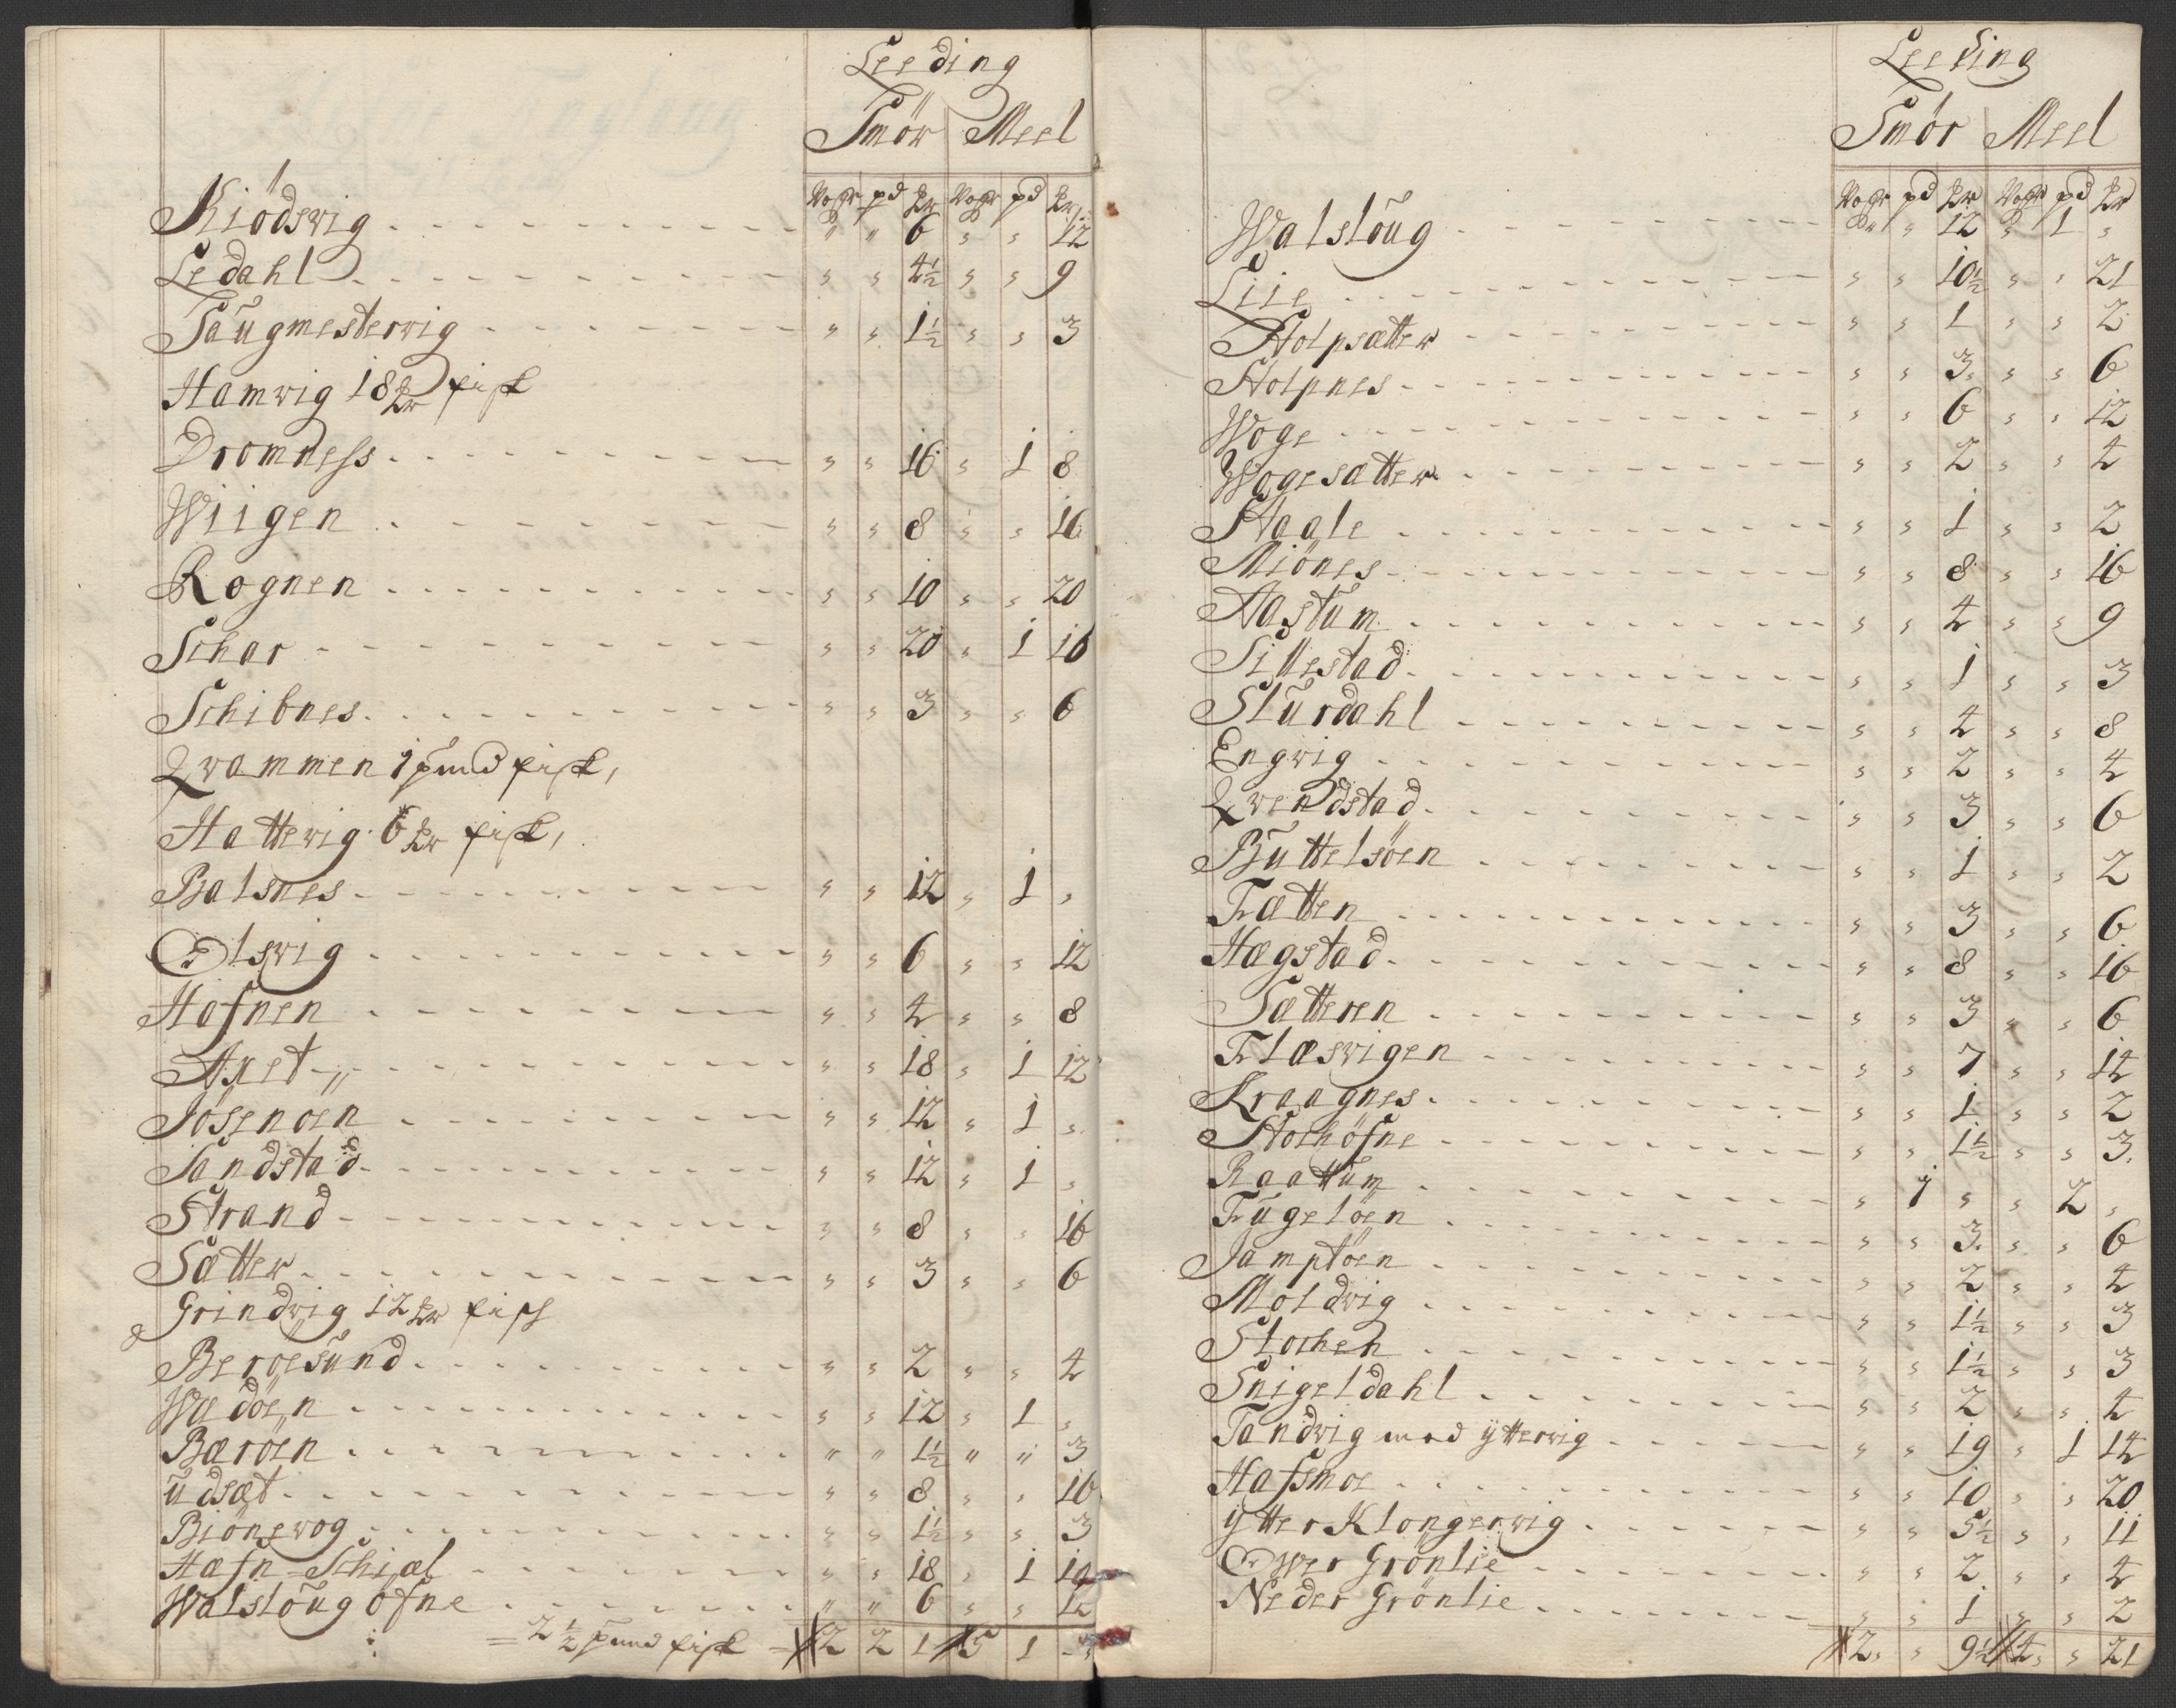 Leeding
Smör Meel
Wogr pd Mr Wogr pd Mr
Kiödsvig - - - " " 6 " " 12
Ledahl - - - " " 4½ " " 9
Saugmestervig - - - " " 1½ " " 3
Hamvig 18 Mr fisk
Dromness - - - " " 16 " 1 8
Wiigen - - - " " 8 " " 16
Rognen - - - " " 10 " " 20
Schar - - - " " 20 " 1 16
Schibnes - - - " " 3 " " 6
Qvammen 1 pund fisk,
Hattevig 6 Mr fisk,
Balsnes - - - " " 12 " 1 "
Olsvig - - - " " 6 " " 12
Hafnen - - - " " 4 " " 8
Axet - - - " " 18 " 1 12
Jösenöen - - - " " 12 " 1 "
Sandstad - - - " " 12 " 1 "
Strand - - - " " 8 " " 16
Sætter - - - " " 3 " " 6
Grindvig 12 Mr fisk
Beroesund - - - " " 2 " " 4
Wædöen - - - " " 12 " 1 "
Bæröen - - - " " 1½ " " 3
Udsæt - - - " " 8 " " 16
Biönevog - - - " " 1½ " " 3
Hafn Schiæl - - - " " 18 " 1 12
Walslöug öfne - - - " " 6 " " 12
= 2½ pund fisk = 2 2 1 5 1 -
Leeding
Smör Meel
Wogr pd Mr Wogr pd Mr
Walslöug - - - " " 12 " 1 "
Liie - - - " " 10½ " " 21
Stolpsætter - - - " " 1 " " 2
Stolpnes - - - " " 3 " " 6
Woge - - - " " 6 " " 12
Wogesætter - - - " " 2 " " 4
Staale - - - " " 1 " " 2
Miönes - - - " " 8 " " 16
Aastum - - - " " 4 " " 9
Sillestad - - - " " 1 " " 3
Slurdahl - - - " " 4 " " 8
Engvig - - - " " 2 " " 4
Qvendstad - - - " " 3 " " 6
Buttelsöen - - - " " 1 " " 2
Fætten - - - " " 3 " " 6
Hægstad - - - " " 8 " " 16
Sætteren - - - " " 3 " " 6
Flæsvigen - - - " " 7 " " 14
Kraagnes - - - " " 1 " " 2
Storhöfne - - - " " 1½ " " 3
Raattum - - - " 1 " " 2 "
Fugelöen - - - " " 3 " " 6
Jamptöen - - - " " 2 " " 4
Moldvig - - - " " 1½ " " 3
Stochen - - - " " 1½ " " 3
Snigeldahl - - - " " 2 " " 4
Tandvig med yttervig - - - " " 19 " 1 14
Hafsmoe - - - " " 10 " " 20
ytter Klongervig - - - " " 5½ " " 11
Ower Grönlie - - - " " 2 " " 4
Neder Grönlie - - - " " 1 " " 2
2 " 9½ 4 " 21